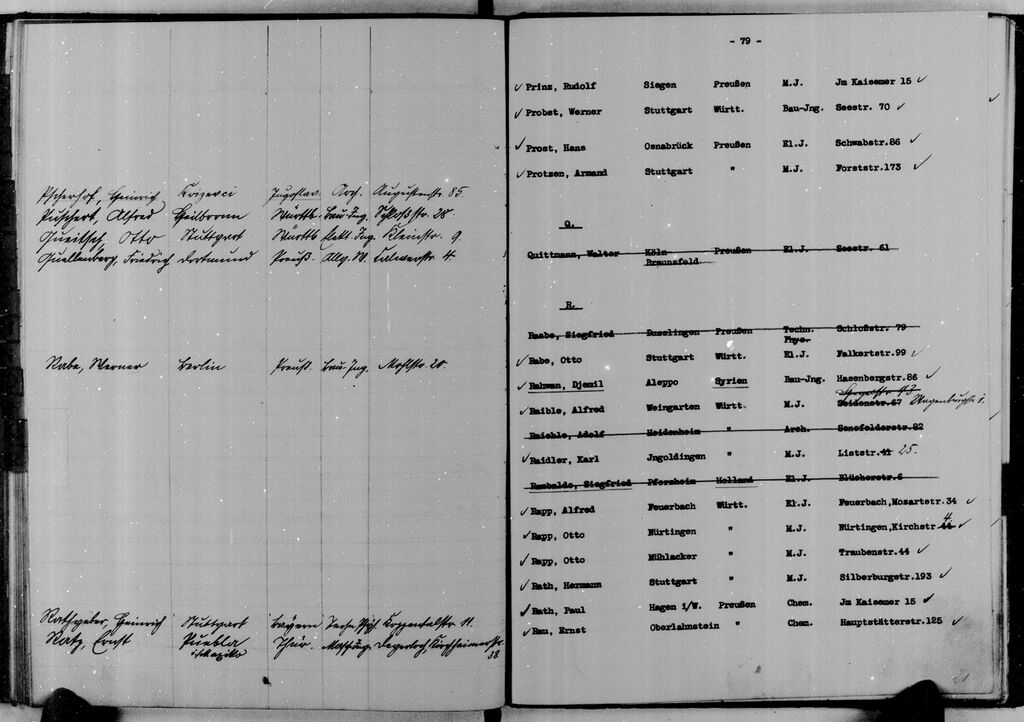 Pscherhof, Heinrich Krizevci Jugoslav. Arch. Augustenstr. 85.
Puschert, Alfred Heilbronn Württb. Bau-Ing. Schloßstr. 28.
Queitsch, Otto Stuttgart Württb. Elekt. Ing. Kleinstr. 9.
Quellenberg, Friedrich Dortmund Preuß. Allg. W. Calwerstr. 4.
Rabe, Werner Berlin Preuß. Bau Ing. Mohlstr. 20.
Rathgeber, Heinrich Stuttgart Bayern Techn. Phys. 11.
Ratz, Ernst Puebla Thür. Masch.Ing. Degerloch, Kirchheimerstr.
i/Mexiko 38
- 79 -
✓ Prinz, Rudolf Siegen Preußen M.J. Jm Kaisemer 15 ✓
✓ Probst, Werner Stuttgart Württ. Bau-Jng. Seestr. 70 ✓
✓ Prost, Hans Osnabrück Preußen El.J. Schwabstr.86 ✓
✓ Protzen, Armand Stuttgart " M.J. Forststr.173 ✓
Q.
Quittmann, Walter Köln Preußen El.J. Seestr. 61
Braunsfeld
R.
Raabe, Siegfried Dusslingen Preußen Techn. Schloßstr. 79
Phys.
✓ Rabe, Otto Stuttgart Württ. El.J. Falkertstr.99 ✓
✓ Rahwan, Djemil Aleppo Syrien Bau-Jng. Hasenbergstr.86 ✓
✓ Raible, Alfred Weingarten Württ. M.J. Seidenstr.67
Raichle, Adolf Heidenheim " Arch. Senefelderstr.82
✓ Raidler, Karl Jngoldingen " M.J. Liststr.41 25.
Rambaldo, Siegfried Pforzheim Holland El.J. Blücherstr.6
✓ Rapp, Alfred Feuerbach Württ. El.J. Feuerbach,Mozartstr.34 ✓
✓ Rapp, Otto Nürtingen " M.J. Nürtingen,Kirchstr.44 4 ✓
✓ Rapp, Otto Mühlacker " M.J. Traubenstr.44 ✓
✓ Rath, Hermann Stuttgart " M.J. Silberburgstr.193 ✓
✓ Rath, Paul Hagen i/W. Preußen Chem. Jm Kaisemer 15 ✓
✓ Rau, Ernst Oberlahnstein " Chem. Hauptstätterstr.125 ✓